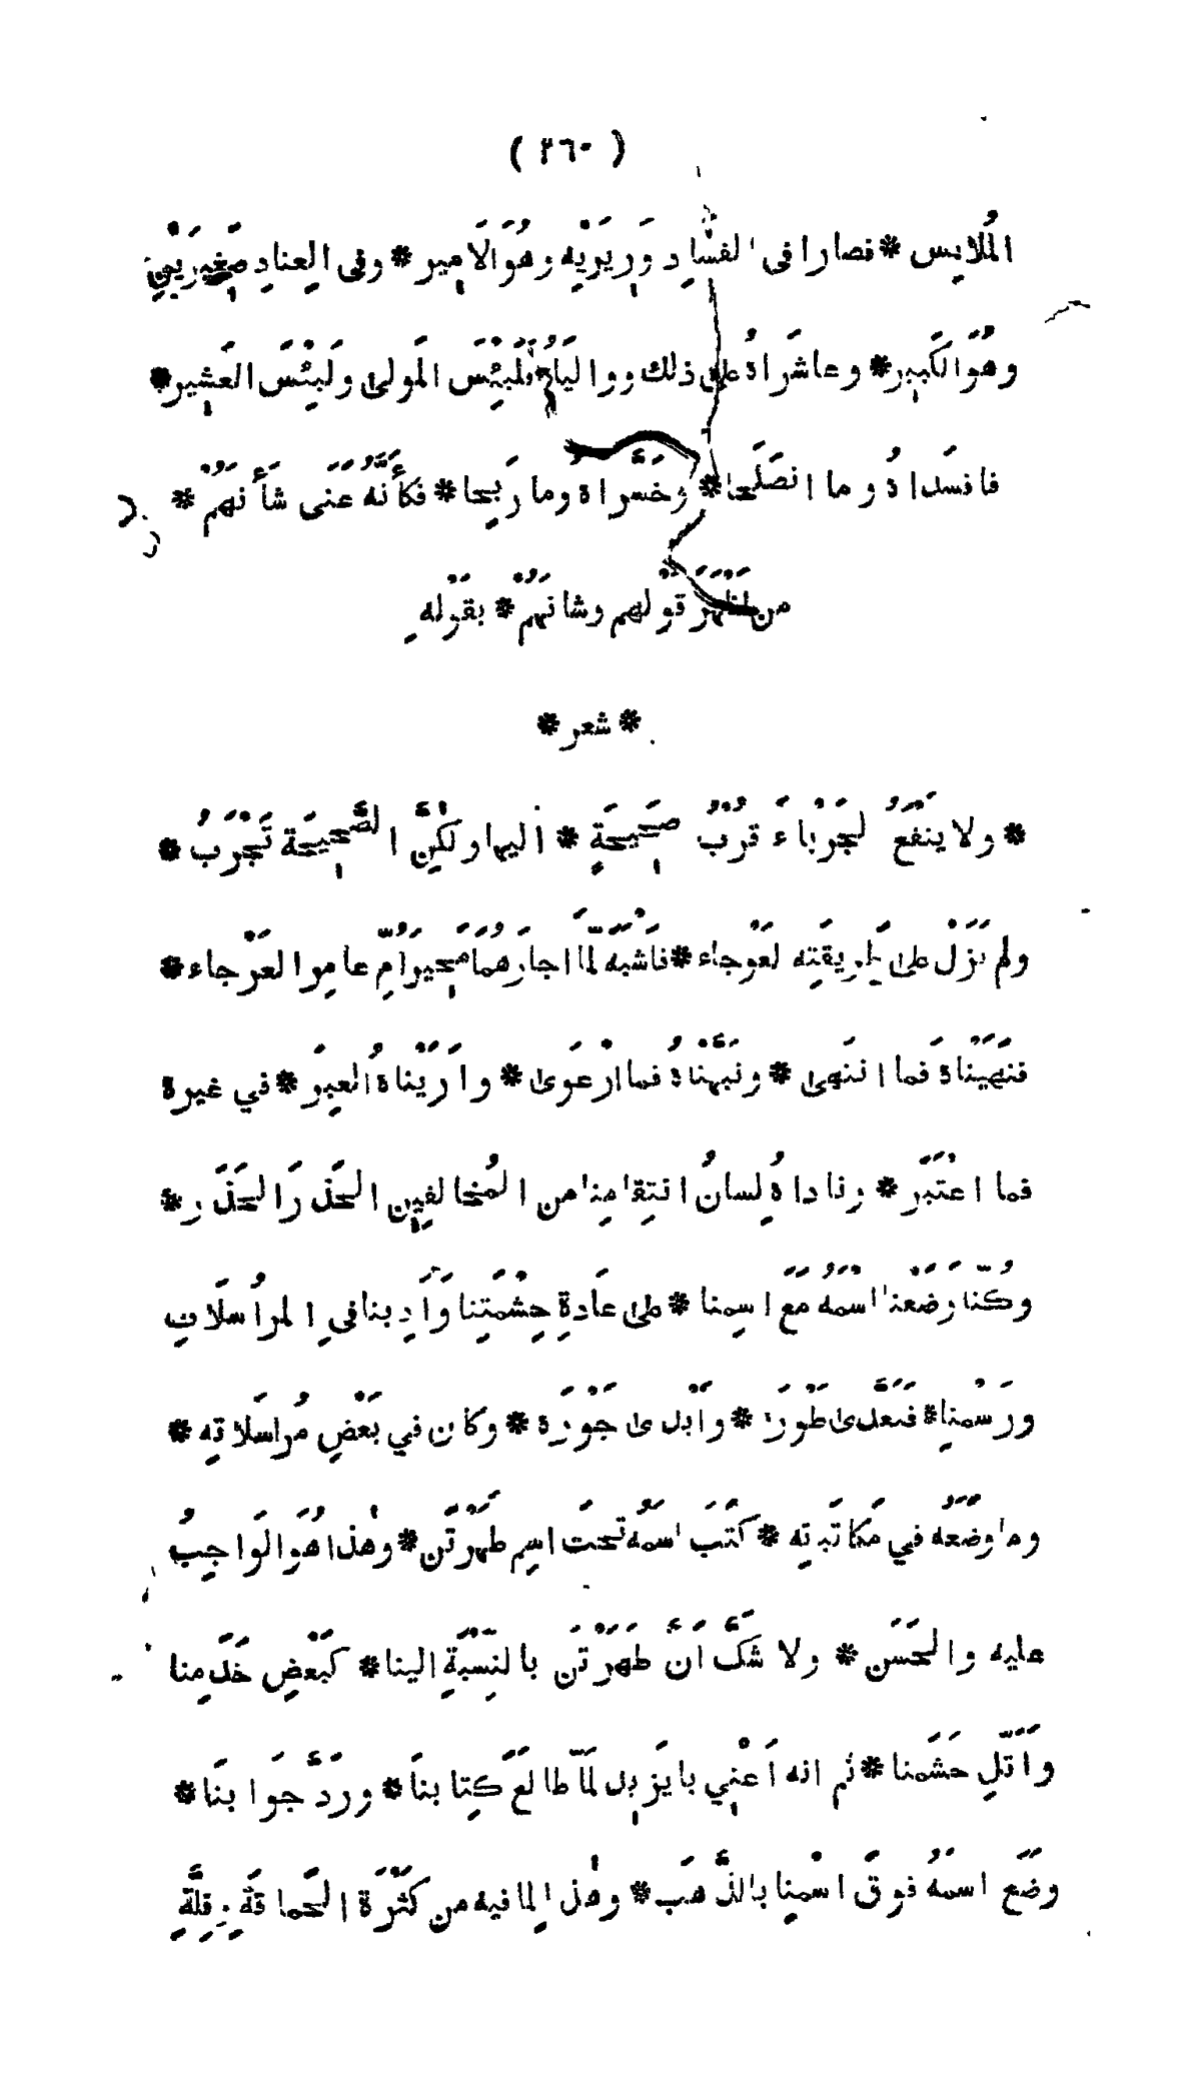 ( ٢٦٠ )
المُلابِس * فصارا فى الفَسَادِ وَرِيرَيْهِ وهُوَ الاَمِير * وفى العِنادِ صَغِيرَيْنِ
وهُوَ الكَبِير * وعاشَراهُ على ذلك ووالَياهُ فلَبِئْسَ المَولى ولَبِئْسَ العَشِير *
فافسَداهُ وما انصَلَحا * وخَسَّراهُ وما رَبِحا * فكأنَّهُ عَنَى شَأنَهُمْ *
من اَظْهَرَ قَوْلهم وشانَهُمْ * بقَوْلهِ
* شعر *
* ولا ينفَعُ الجَرْباءَ قُرْبُ صَحِيحَةٍ * اليها ولكِنَّ الصَّحِيحَة تَجْرَبُ *
ولم نَزَلْ على طَرِيقَتِه العَوْجاء * فاَشْبَهَ لَمَّا اجارَهُما مُجِيرَ اُمِّ عامِر العَرْجاء *
فنَهَيْناهُ فما انتَهى * ونَبَّهْناهُ فما ارْعَوى * واَرَيْناهُ العِبَرَ * في غيره
فما اعْتَبَر * وناداهُ لِسانُ انتِقامِنا من المُخالِفِين الحَذَرَ الحَذَر *
وكُنّا وَضَعْنا اسْمَهُ مَعَ اسمِنا * على عَادَةِ حِشْمَتِنا وَاَدَبِنا فيِ المُراسَلاتِ
ورَسْمِنا * فتَعَدَّى طَوْرَهُ * واَبْدى جَوْرَه * وكان في بَعْضِ مُراسَلاتِه *
وما وضَعَهُ في مَكاتَبِته * كَتَبَ اسمَهُ تَحتَ اسمِ طَهَرْتَن * وهٰذا هُوَ الوَاجِبُ
عليه والحَسَن * ولا شَكَّ اَنَّ طَهَرْتَن بالنِّسْبَةِ الينا * كبَعْضِ خَدَمِنا
واَقَلِّ حَشَمنا * ثم انه اَعْنِي بايَزيد لَمَّا طالَعَ كِتابَنا * ورَدَّ جَوابَنا *
وضَع اسمَهُ فوقَ اسْمِنا بالذَّهَب * وهٰذا لِما فيه من كَثْرَة الحَماقَةِ وقِلَّةِ